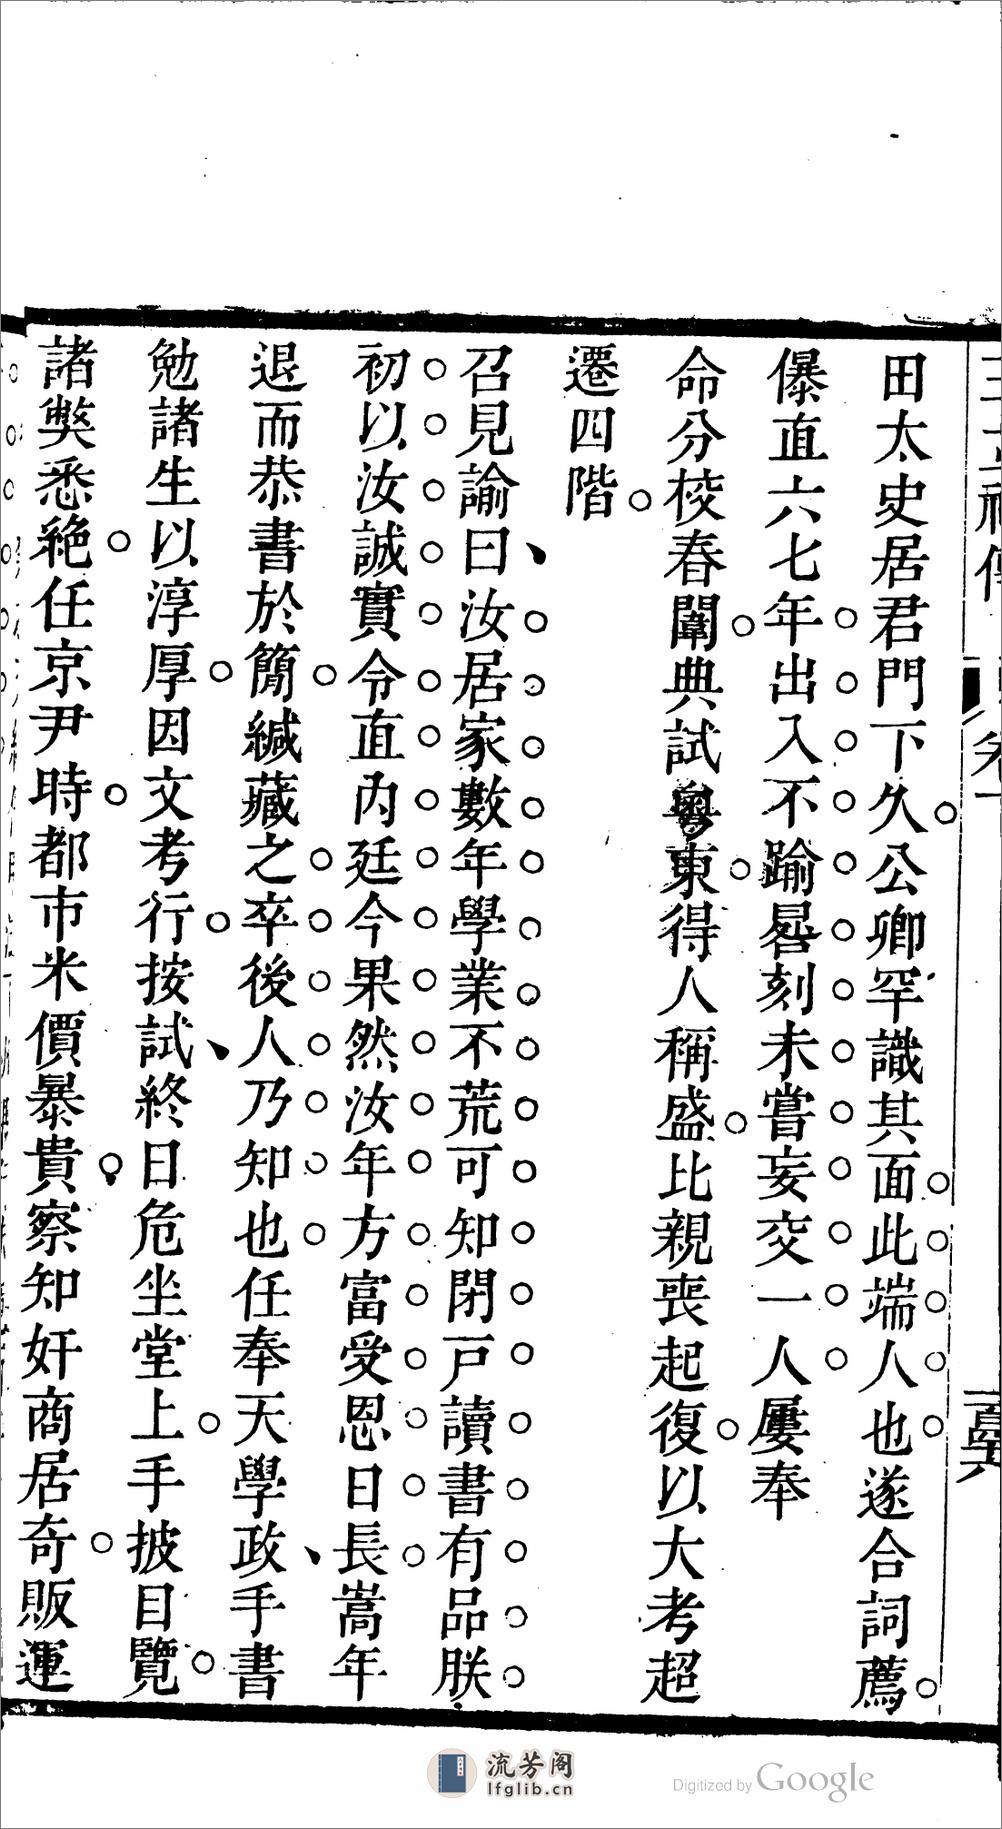 田太史居君門下久公卿罕識其面此端人也遂合詞薦
儤直六七年出入不踰晷刻未嘗妄交一人屢奉
命分校春闈典試粵東得人稱盛比親喪起復以大考超
遷四階
召見諭曰汝居家數年學業不荒可知閉戸讀書有品朕
初以汝誠實令直內廷今果然汝年方富受恩日長嵩年
退而恭書於簡緘藏之卒後人乃知也任奉天學政手書
勉諸生以淳厚因文考行按試終日危坐堂上手披目覽
諸弊悉絶任京尹時都市米價暴貴察知奸商居奇販運
流芳阁
lfglib.cn
Digitized by Google